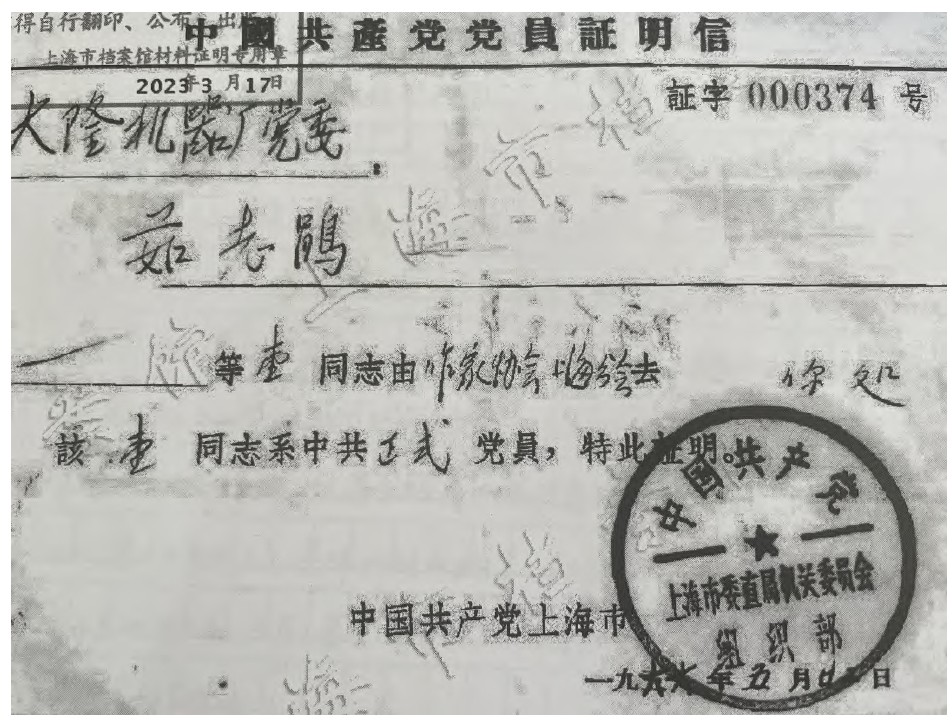 得自行翻印、公布、出版
上海市档案馆材料证明专用章
2023年3月17日
中國共產党党員証明信
証字 000374 号
大隆机器厂党委:
茹志鹃
一 等壹 同志由作家协会上海分会去 你处
該 壹 同志系中共正式 党員，特此証明。
中国共产党
上海市委直局机关委员会
组织部
中国共产党上海市
一九六六年五月 日